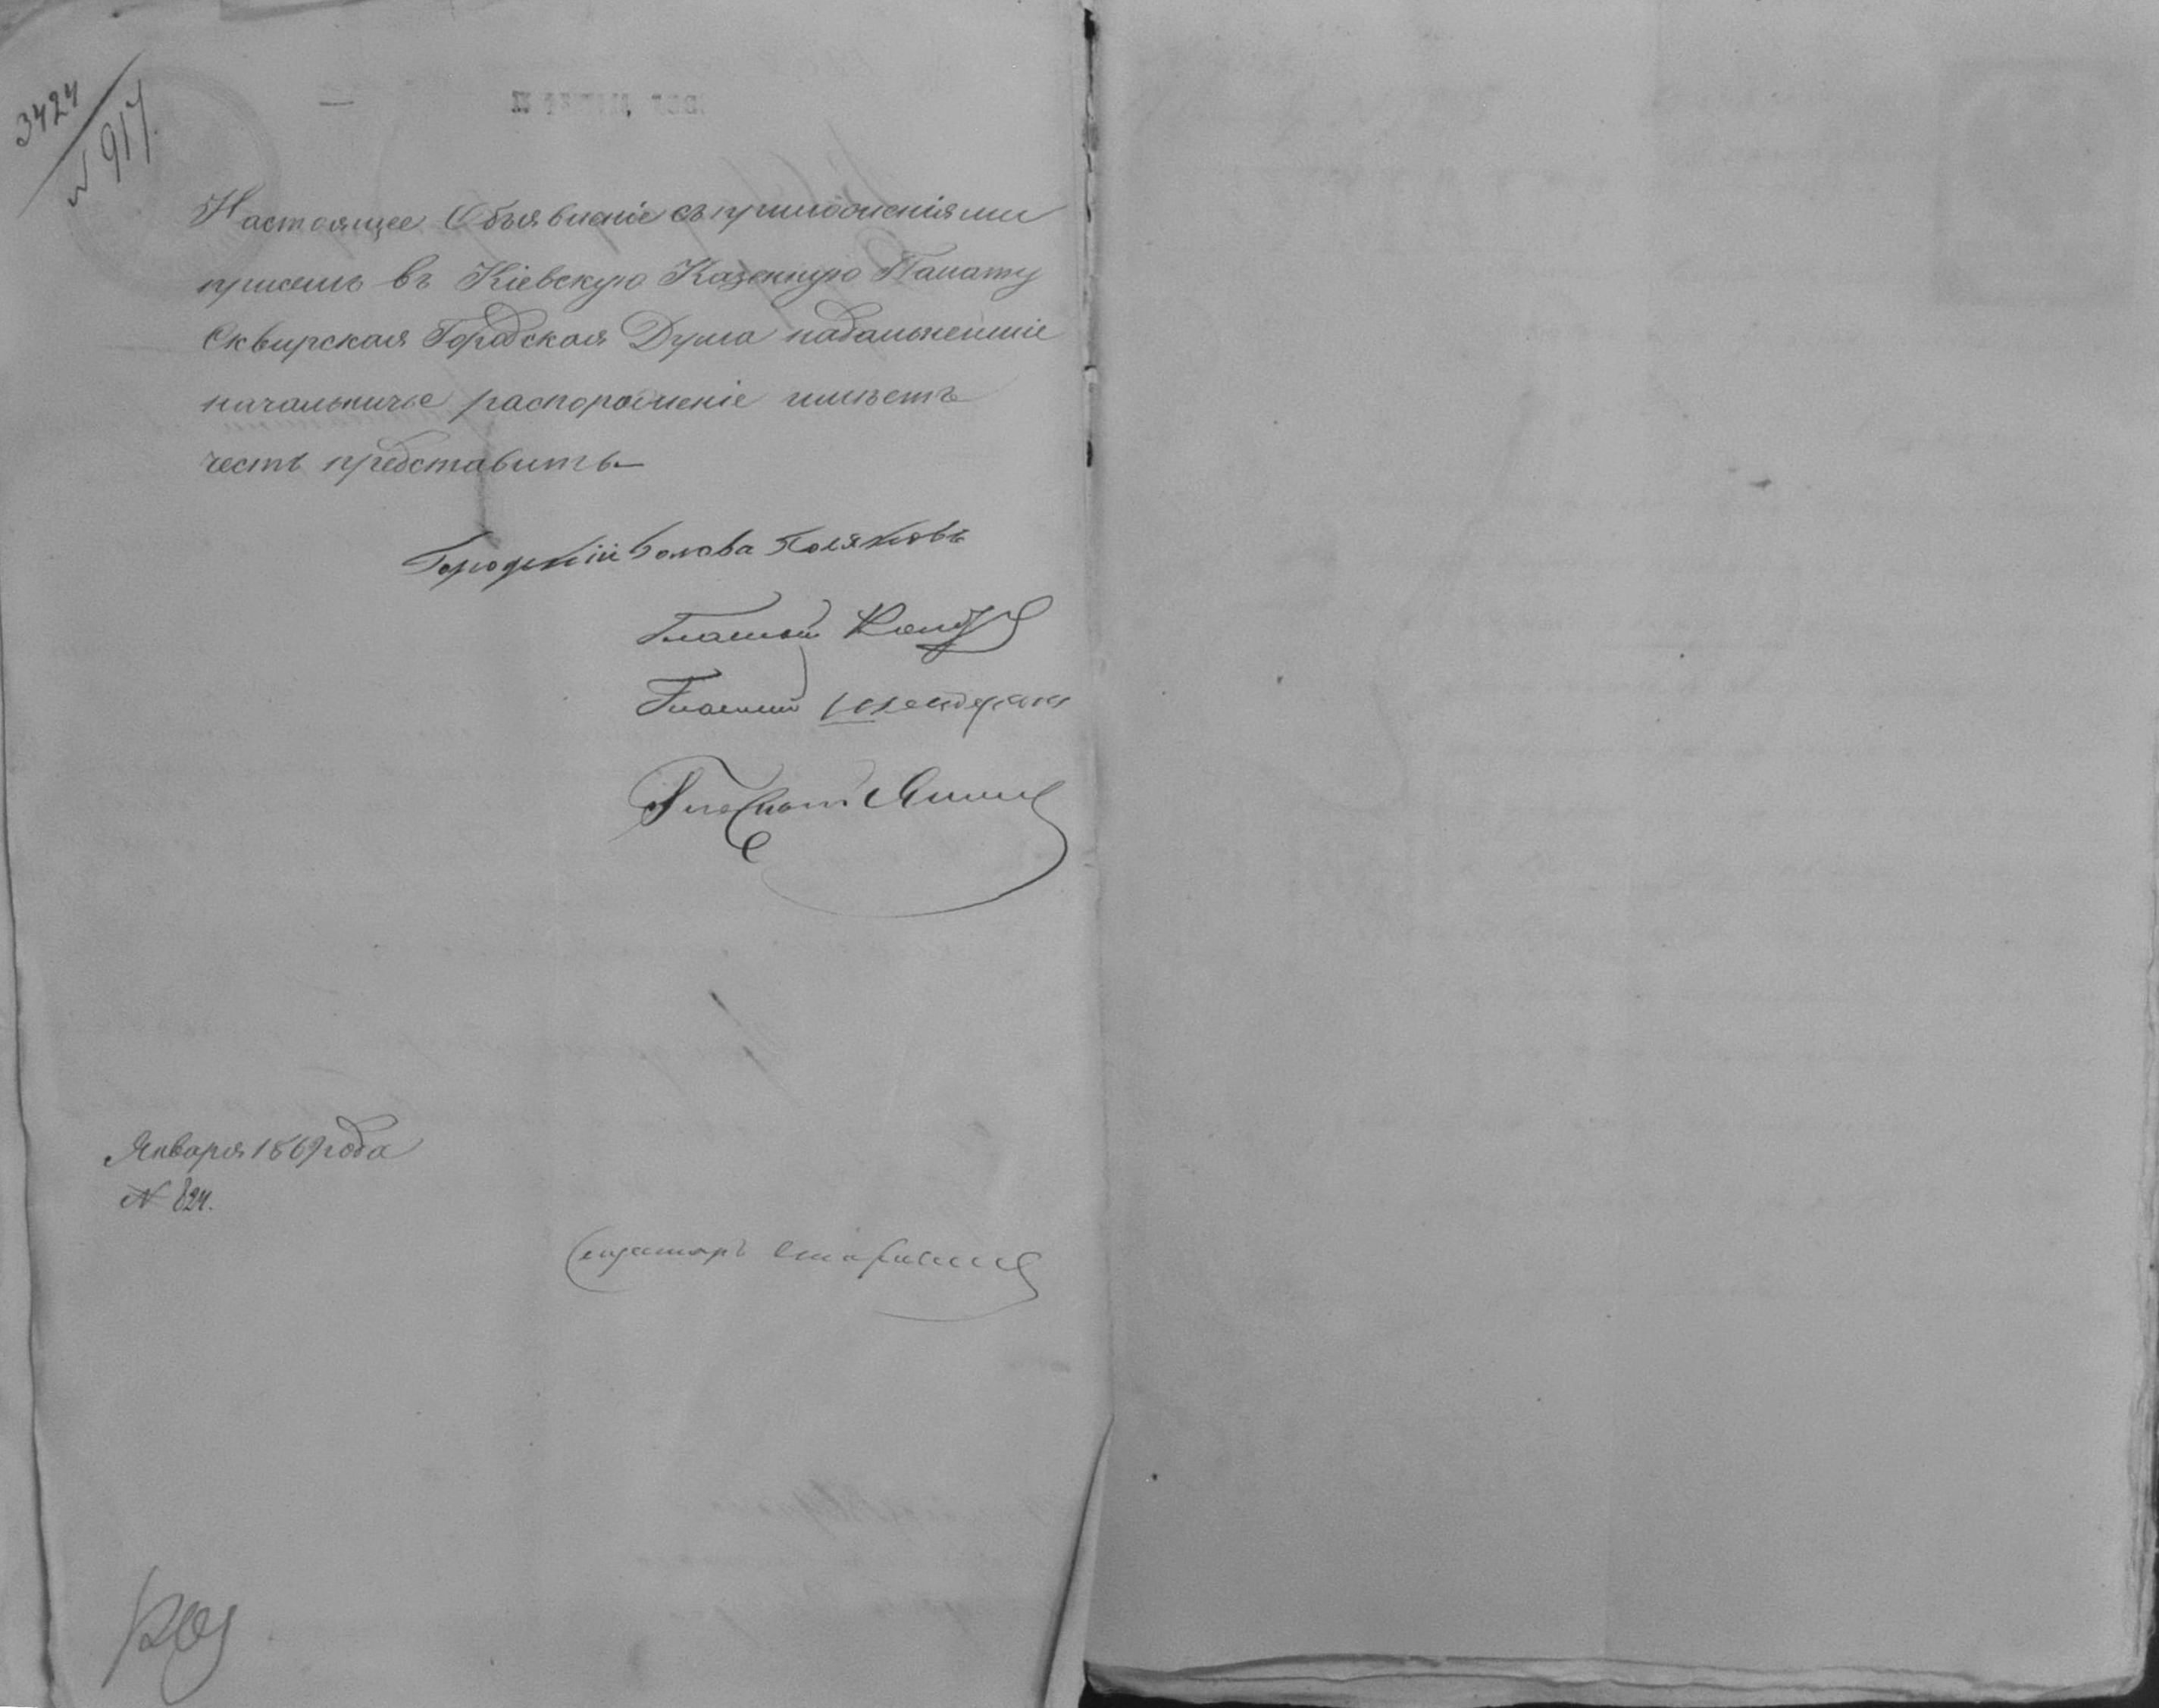 3424
№ 917.
Настоящее Объявленіе съ приложеніями
въ Кіевскую Казенную Палату
Сквирская Городская Дума надальнейшіе
начальничье распороженіе имѣетъ
честь представить
Городскій Голова Поляковъ
Гласный
Гласный
Гласный
Января 1869 года
№ 824.
Секретарь